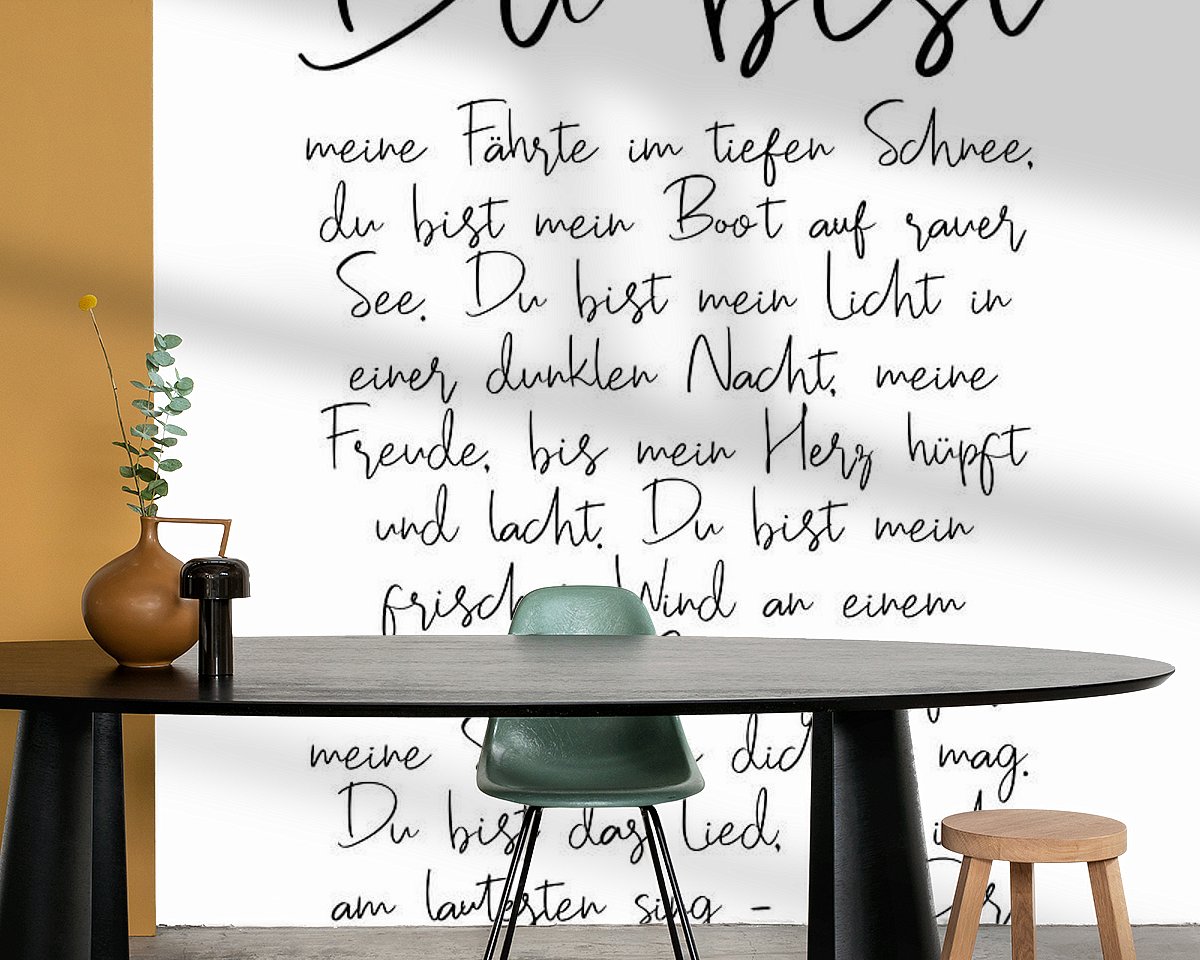 Du bist
meine Fährte im tiefen Schnee,
du bist mein Boot auf rauer
See. Du bist mein Licht in
einer dunklen Nacht, meine
Freude, bis mein Herz hüpft
und lacht. Du bist mein
Wind an einem
meine mag.
Du bist das Lied,
am lautesten sing -